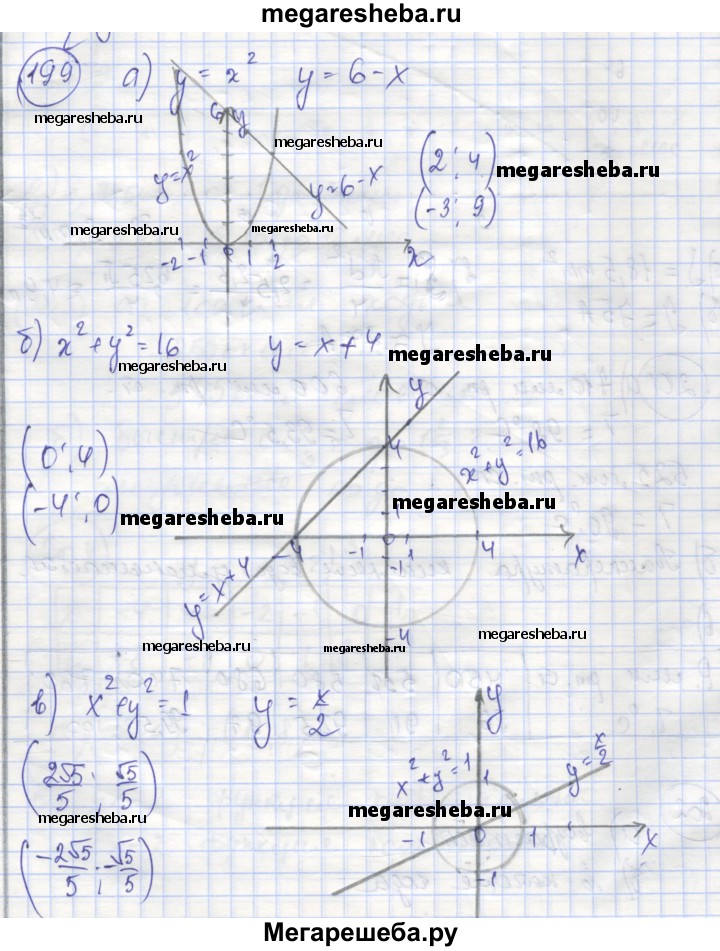 megaresheba.ru
199 а) y = x² y = 6 - x
megaresheba.ru
6 y
megaresheba.ru
y=x²
y=6-x
(2; 4)
megaresheba.ru
(-3; 9)
megaresheba.ru
megaresheba.ru
-2 -1 0 1 2 x
б) x² + y² = 16 y = x + 4
megaresheba.ru
megaresheba.ru
y
4
x² + y² = 16
(0; 4)
(-4; 0)
megaresheba.ru
megaresheba.ru
1
-4 -1 0 1 4 x
-1
y = x + 4
-4
megaresheba.ru
megaresheba.ru
megaresheba.ru
в) x² + y² = 1 y = x/2
y
(2√5/5; √5/5)
x² + y² = 1
1
y = x/2
megaresheba.ru
megaresheba.ru
-1 0 1 x
(-2√5/5; -√5/5)
-1
Мегарешеба.ру